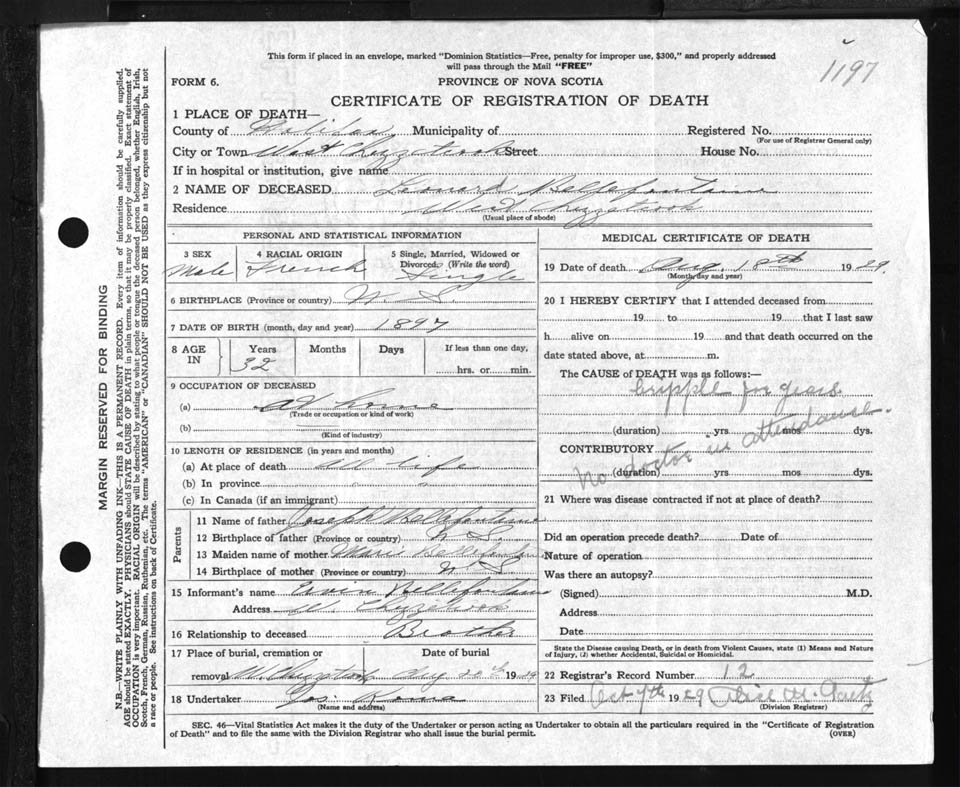 This form if placed in an envelope, marked "Dominion Statistics—Free, penalty for improper use, $300," and properly addressed
will pass through the Mail "FREE"
1197
FORM 6.
PROVINCE OF NOVA SCOTIA
CERTIFICATE OF REGISTRATION OF DEATH
1 PLACE OF DEATH—
County of Halifax Municipality of Registered No.
(For use of Registrar General only)
City or Town West Chezzetcook Street House No.
If in hospital or institution, give name
2 NAME OF DECEASED Leonard Bellefontaine
Residence West Chezzetcook
(Usual place of abode)
PERSONAL AND STATISTICAL INFORMATION
3 SEX 4 RACIAL ORIGIN 5 Single, Married, Widowed or Divorced. (Write the word)
Male French Single
6 BIRTHPLACE (Province or country) N. S.
7 DATE OF BIRTH (month, day and year) 1897
8 AGE IN Years Months Days If less than one day,
32 hrs. or min.
9 OCCUPATION OF DECEASED
(a) At home
(Trade or occupation or kind of work)
(b)
(Kind of industry)
10 LENGTH OF RESIDENCE (in years and months)
(a) At place of death all life
(b) In province
(c) In Canada (if an immigrant)
Parents
11 Name of father Joseph Bellefontaine
12 Birthplace of father (Province or country) N. S.
13 Maiden name of mother Marie Bellefontaine
14 Birthplace of mother (Province or country) N. S.
15 Informant's name Bellefontaine
Address W. Chezzetcook
16 Relationship to deceased Brother
17 Place of burial, cremation or Date of burial
removal W. Aug 20th 1929
18 Undertaker
(Name and address)
MEDICAL CERTIFICATE OF DEATH
19 Date of death Aug. 18th 1929.
(Month, day and year)
20 I HEREBY CERTIFY that I attended deceased from
19 to 19 that I last saw
h alive on 19 and that death occurred on the
date stated above, at m.
The CAUSE of DEATH was as follows:
Cripple for years
(duration) yrs mos dys.
CONTRIBUTORY
No doctor in attendance.
(duration) yrs mos dys.
21 Where was disease contracted if not at place of death?
Did an operation precede death? Date of
Nature of operation
Was there an autopsy?
(Signed) M.D.
Address
Date
State the Disease causing Death, or in death from Violent Causes, state (1) Means and Nature
of Injury, (2) whether Accidental, Suicidal or Homicidal.
22 Registrar's Record Number 12
23 Filed Oct 7th 1929 Alice M.
(Division Registrar)
SEC. 46—Vital Statistics Act makes it the duty of the Undertaker or person acting as Undertaker to obtain all the particulars required in the "Certificate of Registration
of Death" and to file the same with the Division Registrar who shall issue the burial permit. (OVER)
MARGIN RESERVED FOR BINDING
N.B.—WRITE PLAINLY WITH UNFADING INK—THIS IS A PERMANENT RECORD. Every item of information should be carefully supplied.
AGE should be stated EXACTLY. PHYSICIANS should STATE CAUSE OF DEATH in plain terms, so that it may be properly classified. Exact statement of
OCCUPATION is very important. RACIAL ORIGIN will be described by stating to what people or tongue the deceased person belonged, whether English, Irish,
Scotch, French, German, Russian, Ruthenian, etc. The terms "AMERICAN" or "CANADIAN" SHOULD NOT BE USED as they express citizenship but not
a race or people. See instructions on back of Certificate.